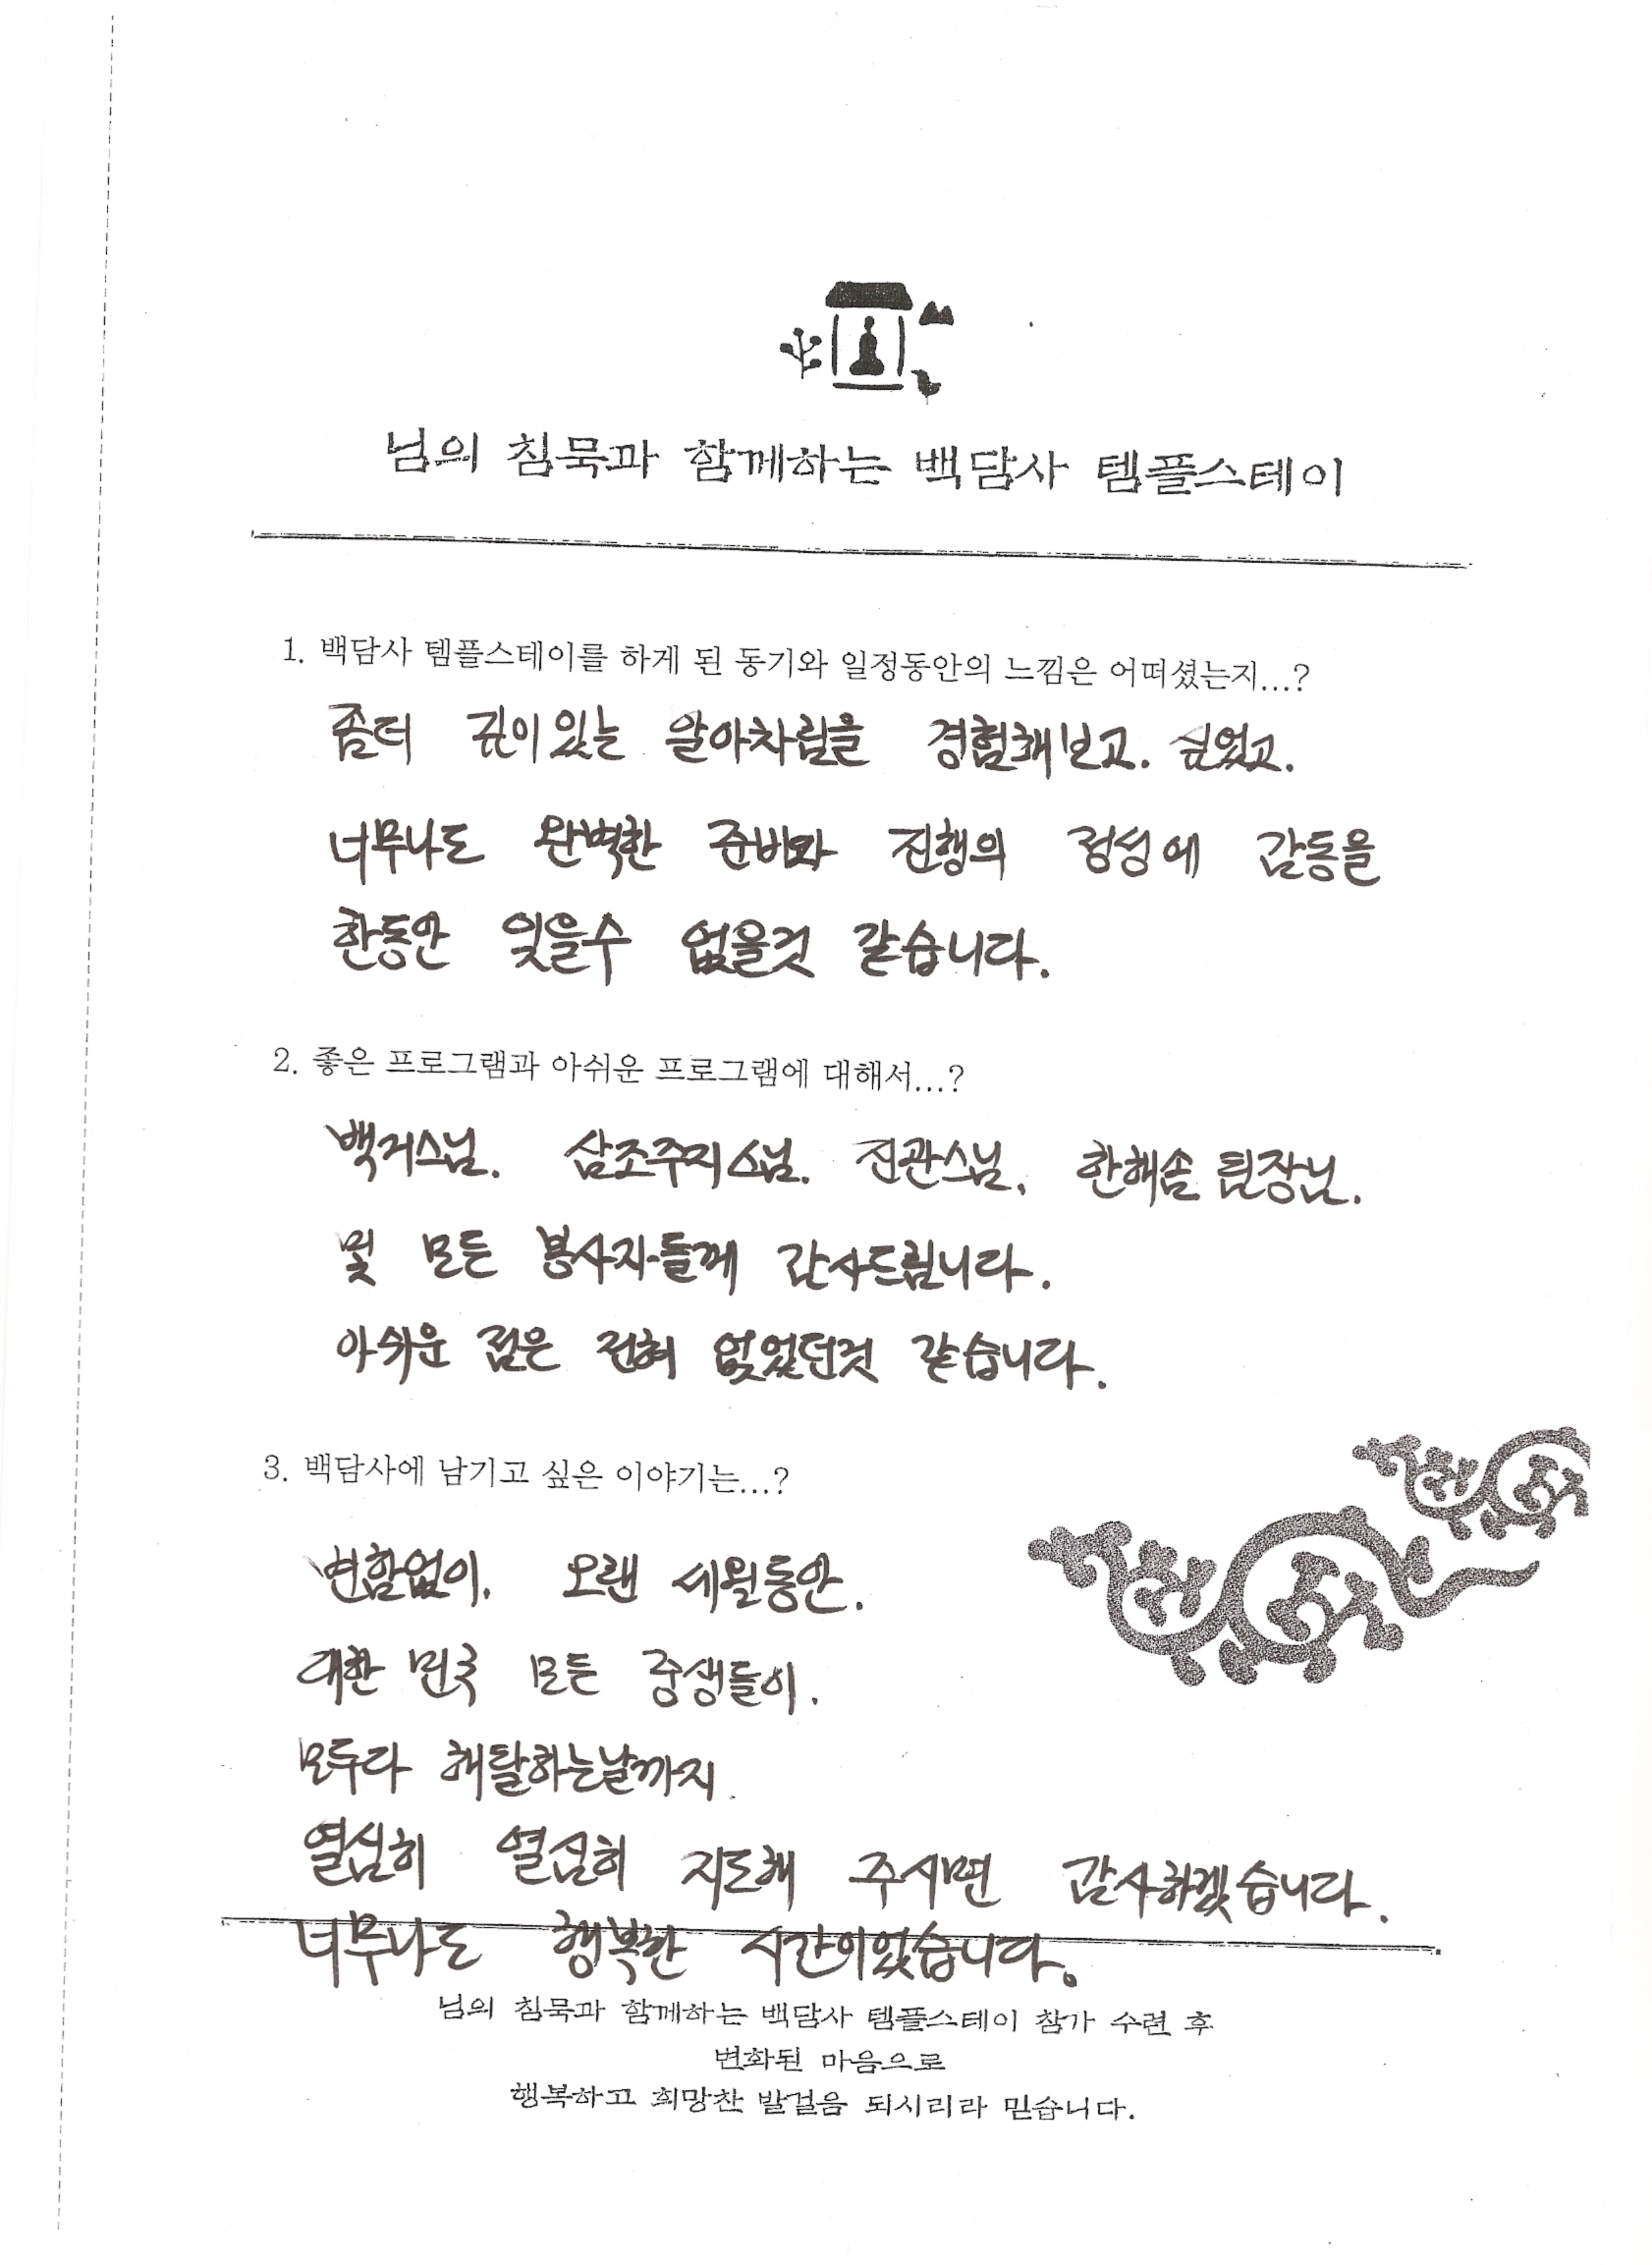 님의 침묵과 함께하는 백담사 템플스테이
1. 백담사 템플스테이를 하게 된 동기와 일정동안의 느낌은 어떠셨는지...?
좀더 깊이있는 알아차림을 경험해보고. 싶었고.
너무나도 완벽한 준비와 진행의 정성에 감동을
한동안 잊을수 없을것 같습니다.
2. 좋은 프로그램과 아쉬운 프로그램에 대해서...?
백거스님. 삼조주지스님. 진관스님, 한해솜 팀장님.
및 모든 봉사자들께 감사드립니다.
아쉬운 점은 전혀 없었던것 같습니다.
3. 백담사에 남기고 싶은 이야기는...?
변함없이. 오랜 세월동안.
대한 민국 모든 중생들이.
모두다 해탈하는날까지
열심히 열심히 지도해 주시면 감사하겠습니다.
너무나도 행복한 시간이었습니다.
님의 침묵과 함께하는 백담사 템플스테이 참가 수련 후
변화된 마음으로
행복하고 희망찬 발걸음 되시리라 믿습니다.